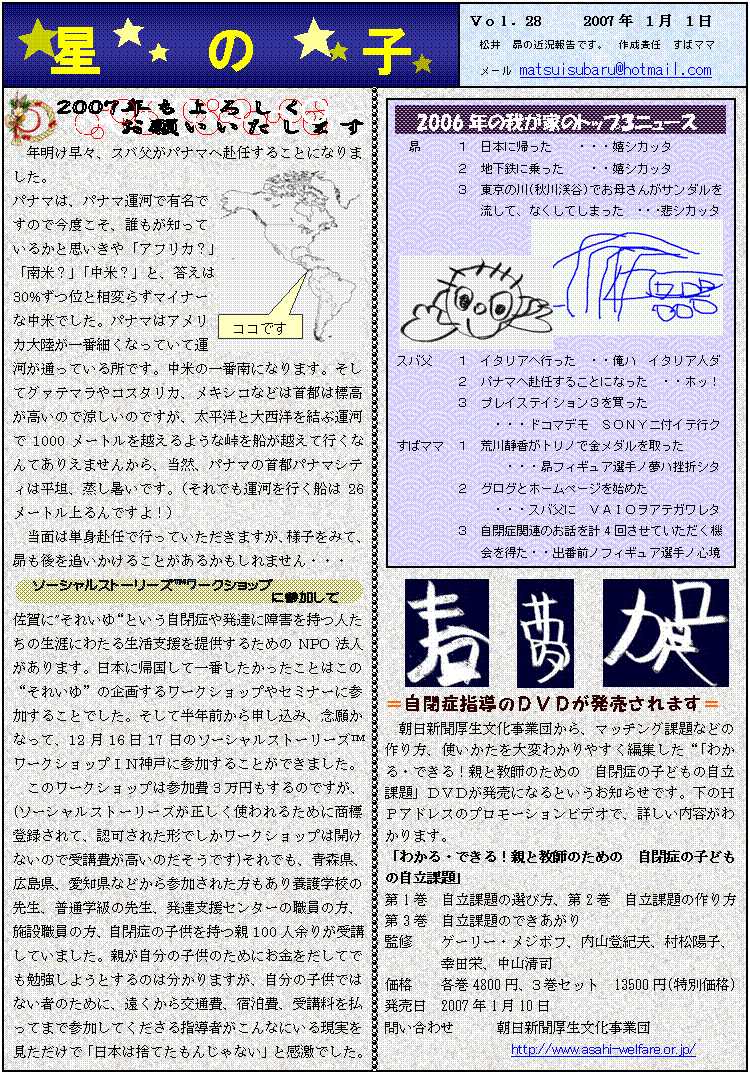 星の子
Vol. 28　　2007年 1月 1日
松井　昴の近況報告です。　作成責任　すばママ
メール matsuisubaru@hotmail.com
2007年もよろしく
お願いいたします
　年明け早々、スバ父がパナマへ赴任することになりま
した。
パナマは、パナマ運河で有名で
すので今度こそ、誰もが知って
いるかと思いきや「アフリカ？」
「南米？」「中米？」と、答えは
30%ずつ位と相変らずマイナー
な中米でした。パナマはアメリ
カ大陸が一番細くなっていて運
河が通っている所です。中米の一番南になります。そし
てグァテマラやコスタリカ、メキシコなどは首都は標高
が高いので涼しいのですが、太平洋と大西洋を結ぶ運河
で 1000 メートルを越えるような峠を船が越えて行くな
んてありえませんから、当然、パナマの首都パナマシテ
ィは平坦、蒸し暑いです。（それでも運河を行く船は 26
メートル上るんですよ！）
　当面は単身赴任で行っていただきますが、様子をみて、
昴も後を追いかけることがあるかもしれません・・・
ココです
ソーシャルストーリーズ™ワークショップ
に参加して
佐賀に"それいゆ“という自閉症や発達に障害を持つ人た
ちの生涯にわたる生活支援を提供するための NPO 法人
があります。日本に帰国して一番したかったことはこの
“それいゆ”の企画するワークショップやセミナーに参
加することでした。そして半年前から申し込み、念願か
なって、12月16日17日のソーシャルストーリーズ™
ワークショップＩＮ神戸に参加することができました。
　このワークショップは参加費３万円もするのですが、
(ソーシャルストーリーズが正しく使われるために商標
登録されて、認可された形でしかワークショップは開け
ないので受講費が高いのだそうです)それでも、青森県、
広島県、愛知県などから参加された方もあり養護学校の
先生、普通学級の先生、発達支援センターの職員の方、
施設職員の方、自閉症の子供を持つ親100人余りが受講
していました。親が自分の子供のためにお金をだしてで
も勉強しようとするのは分かりますが、自分の子供では
ない者のために、遠くから交通費、宿泊費、受講料を払
ってまで参加してくださる指導者がこんなにいる現実を
見ただけで「日本は捨てたもんじゃない」と感激でした。
2006年の我が家のトップ3ニュース
昴　1　日本に帰った　・・・嬉シカッタ
2　地下鉄に乗った　・・嬉シカッタ
3　東京の川(秋川渓谷)でお母さんがサンダルを
流して、なくしてしまった　・・・悲シカッタ
スバ父　1　イタリアへ行った　・・俺ハ　イタリア人ダ
2　パナマへ赴任することになった　・・ホッ！
3　プレイステイション３を買った
・・・ドコマデモ　ＳＯＮＹニ付イテ行ク
すばママ　1　荒川静香がトリノで金メダルを取った
・・・昴フィギュア選手ノ夢ハ挫折シタ
2　グログとホームページを始めた
・・・スバ父に　ＶＡＩＯヲアテガワレタ
3　自閉症関連のお話を計４回させていただく機
会を得た・・出番前ノフィギュア選手ノ心境
＝自閉症指導のＤＶＤが発売されます＝
　朝日新聞厚生文化事業団から、マッチング課題などの
作り方、使いかたを大変わかりやすく編集した“「わか
る・できる！親と教師のための　自閉症の子どもの自立
課題」ＤＶＤが発売になるというお知らせです。下のＨ
Ｐアドレスのプロモーションビデオで、詳しい内容がわ
かります。
「わかる・できる！親と教師のための　自閉症の子ども
の自立課題」
第１巻　自立課題の選び方、第２巻　自立課題の作り方
第３巻　自立課題のできあがり
監修　　ゲーリー・メジボフ、内山登紀夫、村松陽子、
幸田栄、中山清司
価格　　各巻4800円、３巻セット　13500円(特別価格)
発売日　2007年1月10日
問い合わせ　　朝日新聞厚生文化事業団
http://www.asahi-welfare.or.jp/